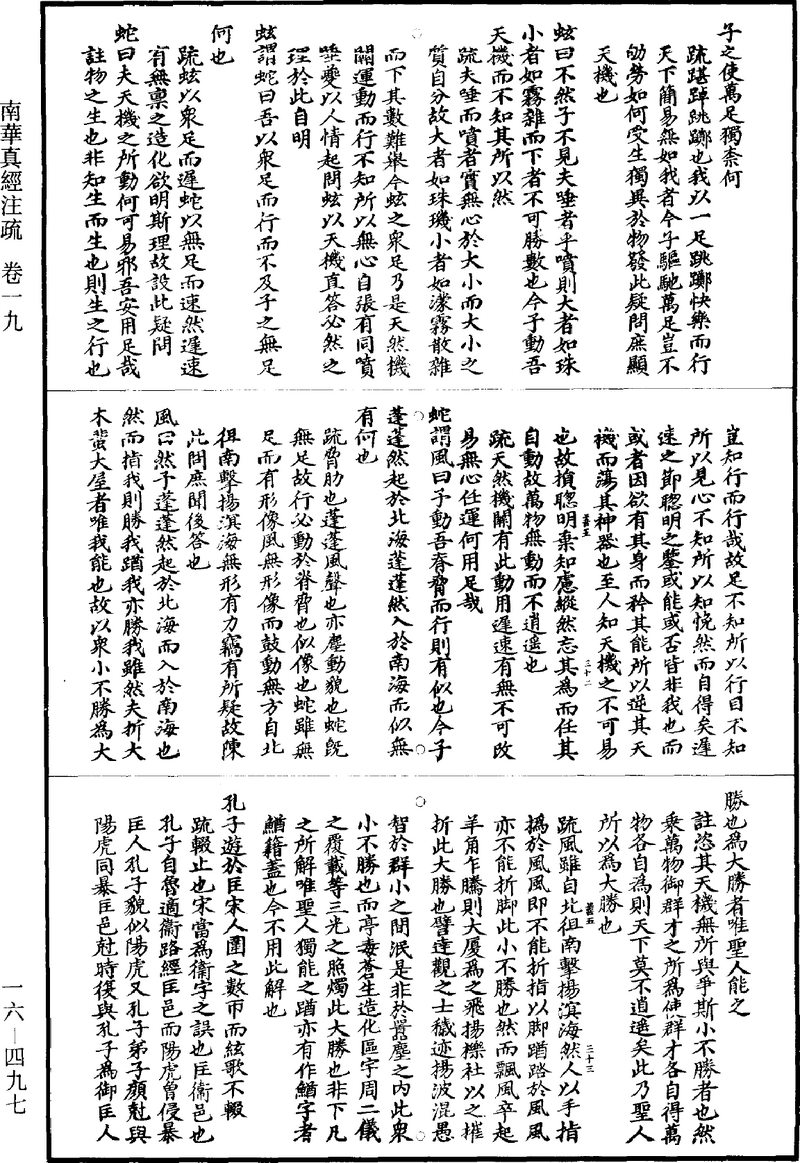 南華真經注疏　卷一九
一六—四九七
子之使萬足獨柰何
疏趻踔跳躑也我以一足跳躑快樂而行
天下簡易無如我者今子驅馳萬足豈不
劬勞如何受生獨異於物發此疑問庶顯
天機也
蚿曰不然子不見夫唾者乎噴則大者如珠
小者如霧雜而下者不可勝數也今子動吾
天機而不知其所以然
疏夫唾而噴者實無心於大小而大小之
質自分故大者如珠璣小者如濛霧散雜
而下其數難舉今蚿之衆足乃是天然機
關運動而行不知所以無心自張有同噴
唾夔以人情起問蚿以天機直答必然之
理於此自明
蚿謂蛇曰吾以衆足而行而不及子之無足
何也
疏蚿以衆足而遲蛇以無足而速然遲速
有無稟之造化欲明斯理故設此疑問
蛇曰夫天機之所動何可易邪吾安用足哉
註物之生也非知生而生也則生之行也
豈知行而行哉故足不知所以行目不知
所以見心不知所以知悗然而自得矣遲
速之節聰明之鑒或能或否皆非我也而
或者因欲有其身而矜其能所以逆其天
機而蕩其神器也至人知天機之不可易
也故捐聰明棄知慮縱然忘其為而任其
自動故萬物無動而不逍遥也
疏天然機關有此動用遲速有無不可改
易無心任運何用足哉
蛇謂風曰予動吾脊脅而行則有似也今子
蓬蓬然起於北海蓬蓬然入於南海而似無
有何也
疏脅肋也蓬蓬風聲也亦塵動貌也蛇既
無足故行必動於脊脅也似像也蛇雖無
足而有形像風無形像而鼓動無方自北
徂南擊揚溟海無形有力竊有所疑故陳
此問庶聞後答也
風曰然予蓬蓬然起於北海而入於南海也
然而指我則勝我䠓我亦勝我雖然夫折大
木蜚大屋者唯我能也故以衆小不勝為大
勝也為大勝者唯聖人能之
註恣其天機無所與爭斯小不勝者也然
乘萬物御群才之所為使群才各自得萬
物各自為則天下莫不逍遥矣此乃聖人
所以為大勝也
疏風雖自北徂南擊揚溟海然人以手指
撝於風風即不能折指以脚䠓踏於風風
亦不能折脚此小不勝也然而飄風卒起
羊角乍騰則大廈為之飛揚櫟社以之摧
折此大勝也譬達觀之士穢迹揚波混愚
智於群小之間泯是非於囂塵之內此衆
小不勝也而亭毒蒼生造化區宇周二儀
之覆載等三光之照燭此大勝也非下凡
之所解唯聖人獨能之䠓亦有作鰌字者
鰌籍蓋也今不用此解也
孔子遊於匡宋人圍之數帀而絃歌不輟
疏輟止也宋當為衛字之誤也匡衛邑也
孔子自魯適衛路經匡邑而陽虎曾侵暴
匡人孔子貌似陽虎又孔子弟子顏尅與
陽虎同暴匡邑尅時復與孔子為御匡人